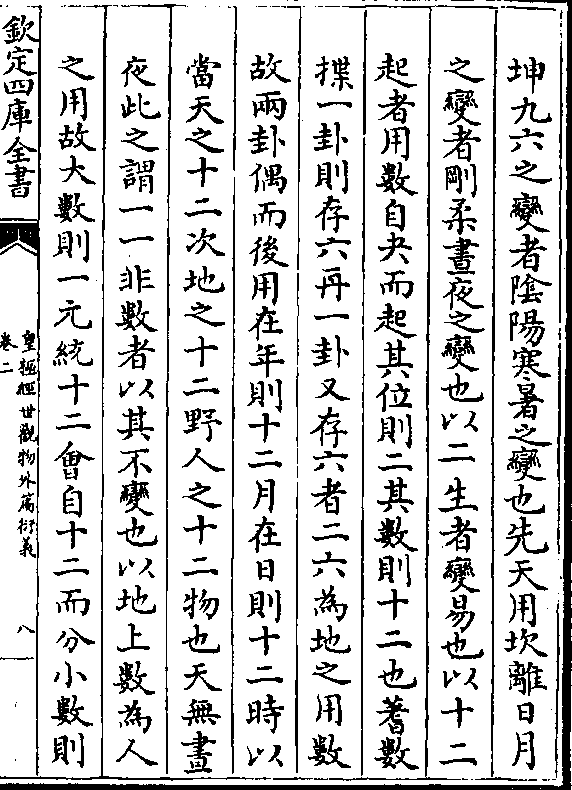 坤九六之變者隂陽寒暑之變也先天用坎離日月
之變者剛柔晝夜之變也以二生者變易也以十二
起者用數自夬而起其位則二其數則十二也蓍數
揲一卦則存六再一卦又存六者二六為地之用數
故兩卦偶而後用在年則十二月在日則十二時以
當天之十二次地之十二野人之十二物也天無晝
夜此之謂一一非數者以其不變也以地上數為人
之用故大數則一元統十二會自十二而分小數則
欽定四庫全書
皇極經世觀物外篇衍義
卷二
八